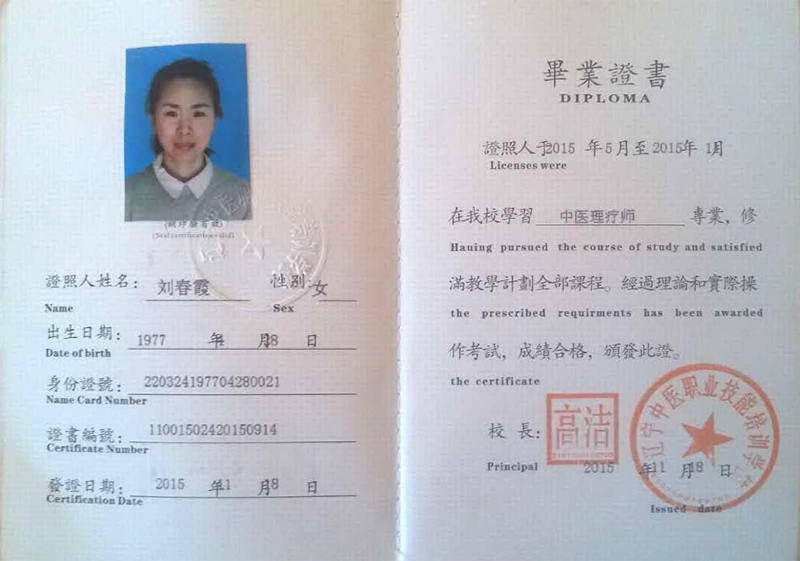 (鋼印騎着效)
(Seal certifications valid)
證照人姓名: 刘春霞 性别: 女
Name Sex
出生日期: 1977 年 月 8 日
Date of birth
身份證號: 220324197704280021
Name Card Number
證書編號: 11001502420150914
Certificate Number
發證日期: 2015 年 1 月 8 日
Certification Date
畢業證書
DIPLOMA
證照人于2015 年5月至2015年 1月
Licenses were
在我校學習 中医理疗师 專業，修
Hauing pursued the course of study and satisfied
滿教學計劃全部課程。經過理論和實際操
the prescribed requirments has been awarded
作考試，成績合格，頒發此證。
the certificate
校長: 高洁
Principal 2015 年 11 月 18 日
Issued date
辽宁中医职业技能培训学校